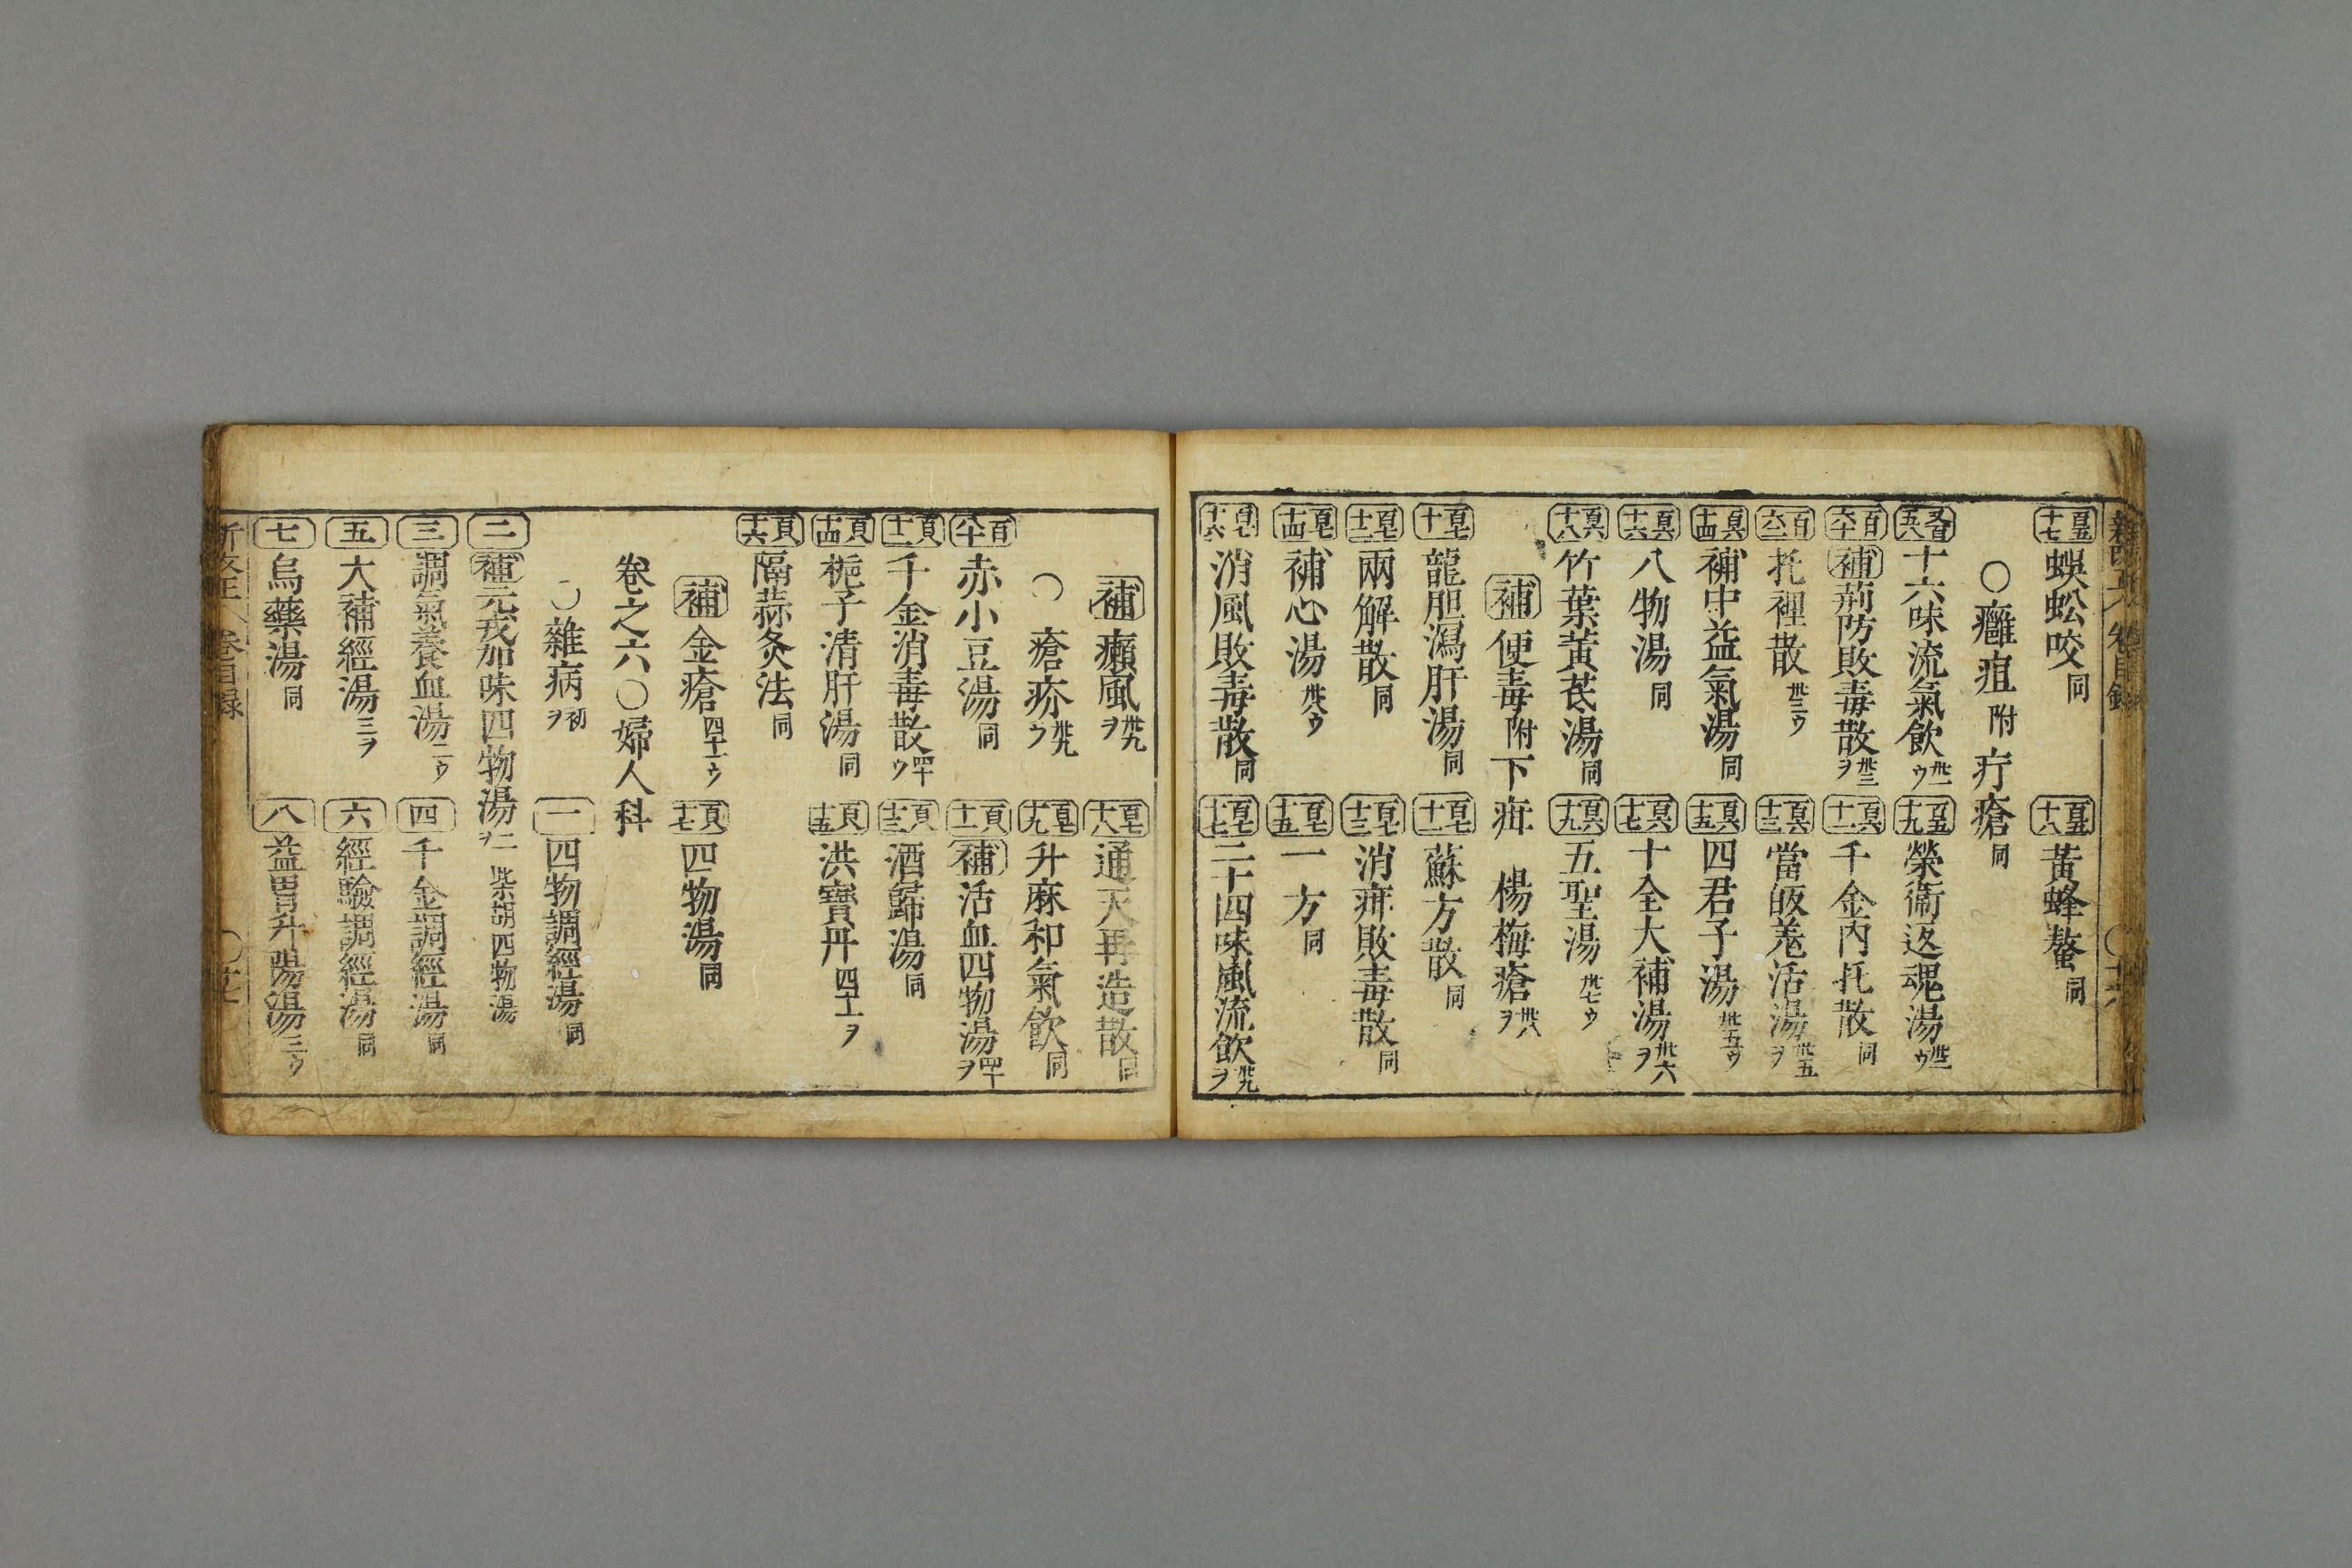 蜈蚣咬同 黃蜂螫同
〇癰疽附疔瘡同
十六味流氣飲卅一ウ 榮衞返魂湯卅二ウ
補荊防敗毒散卅三ヲ 千金内托散同
托裡散卅三ウ 當皈羗活湯卅五ヲ
補中益氣湯同 四君子湯卅五ウ
八物湯同 十全大補湯卅六ヲ
竹葉黃芪湯同 五聖湯卅七ウ
補便毒附下疳 楊梅瘡卅八ヲ
龍胆瀉肝湯同 蘇方散同
兩解散同 消疳敗毒散同
補心湯卅八ウ 一方同
消風敗毒散同 二十四味風流飲卅九ヲ
補癩風卅九ヲ 通天再造散同
〇瘡疥卅九ウ 升麻和氣飲同
赤小豆湯同 補活血四物湯四十ヲ
千金消毒散四十ウ 酒歸湯同
梔子清肝湯同 洪寶丹四十一ヲ
隔蒜灸法同
補金瘡四十一ウ 四物湯同
卷之六〇婦人科
〇雜病初ヲ 一四物調經湯同
二補元戎加味四物湯二ヲ 柴胡四物湯
三調氣養血湯二ウ 四千金調經湯同
五大補經湯三ヲ 六經驗調經湯同
七烏藥湯同 八益胃升陽湯三ウ